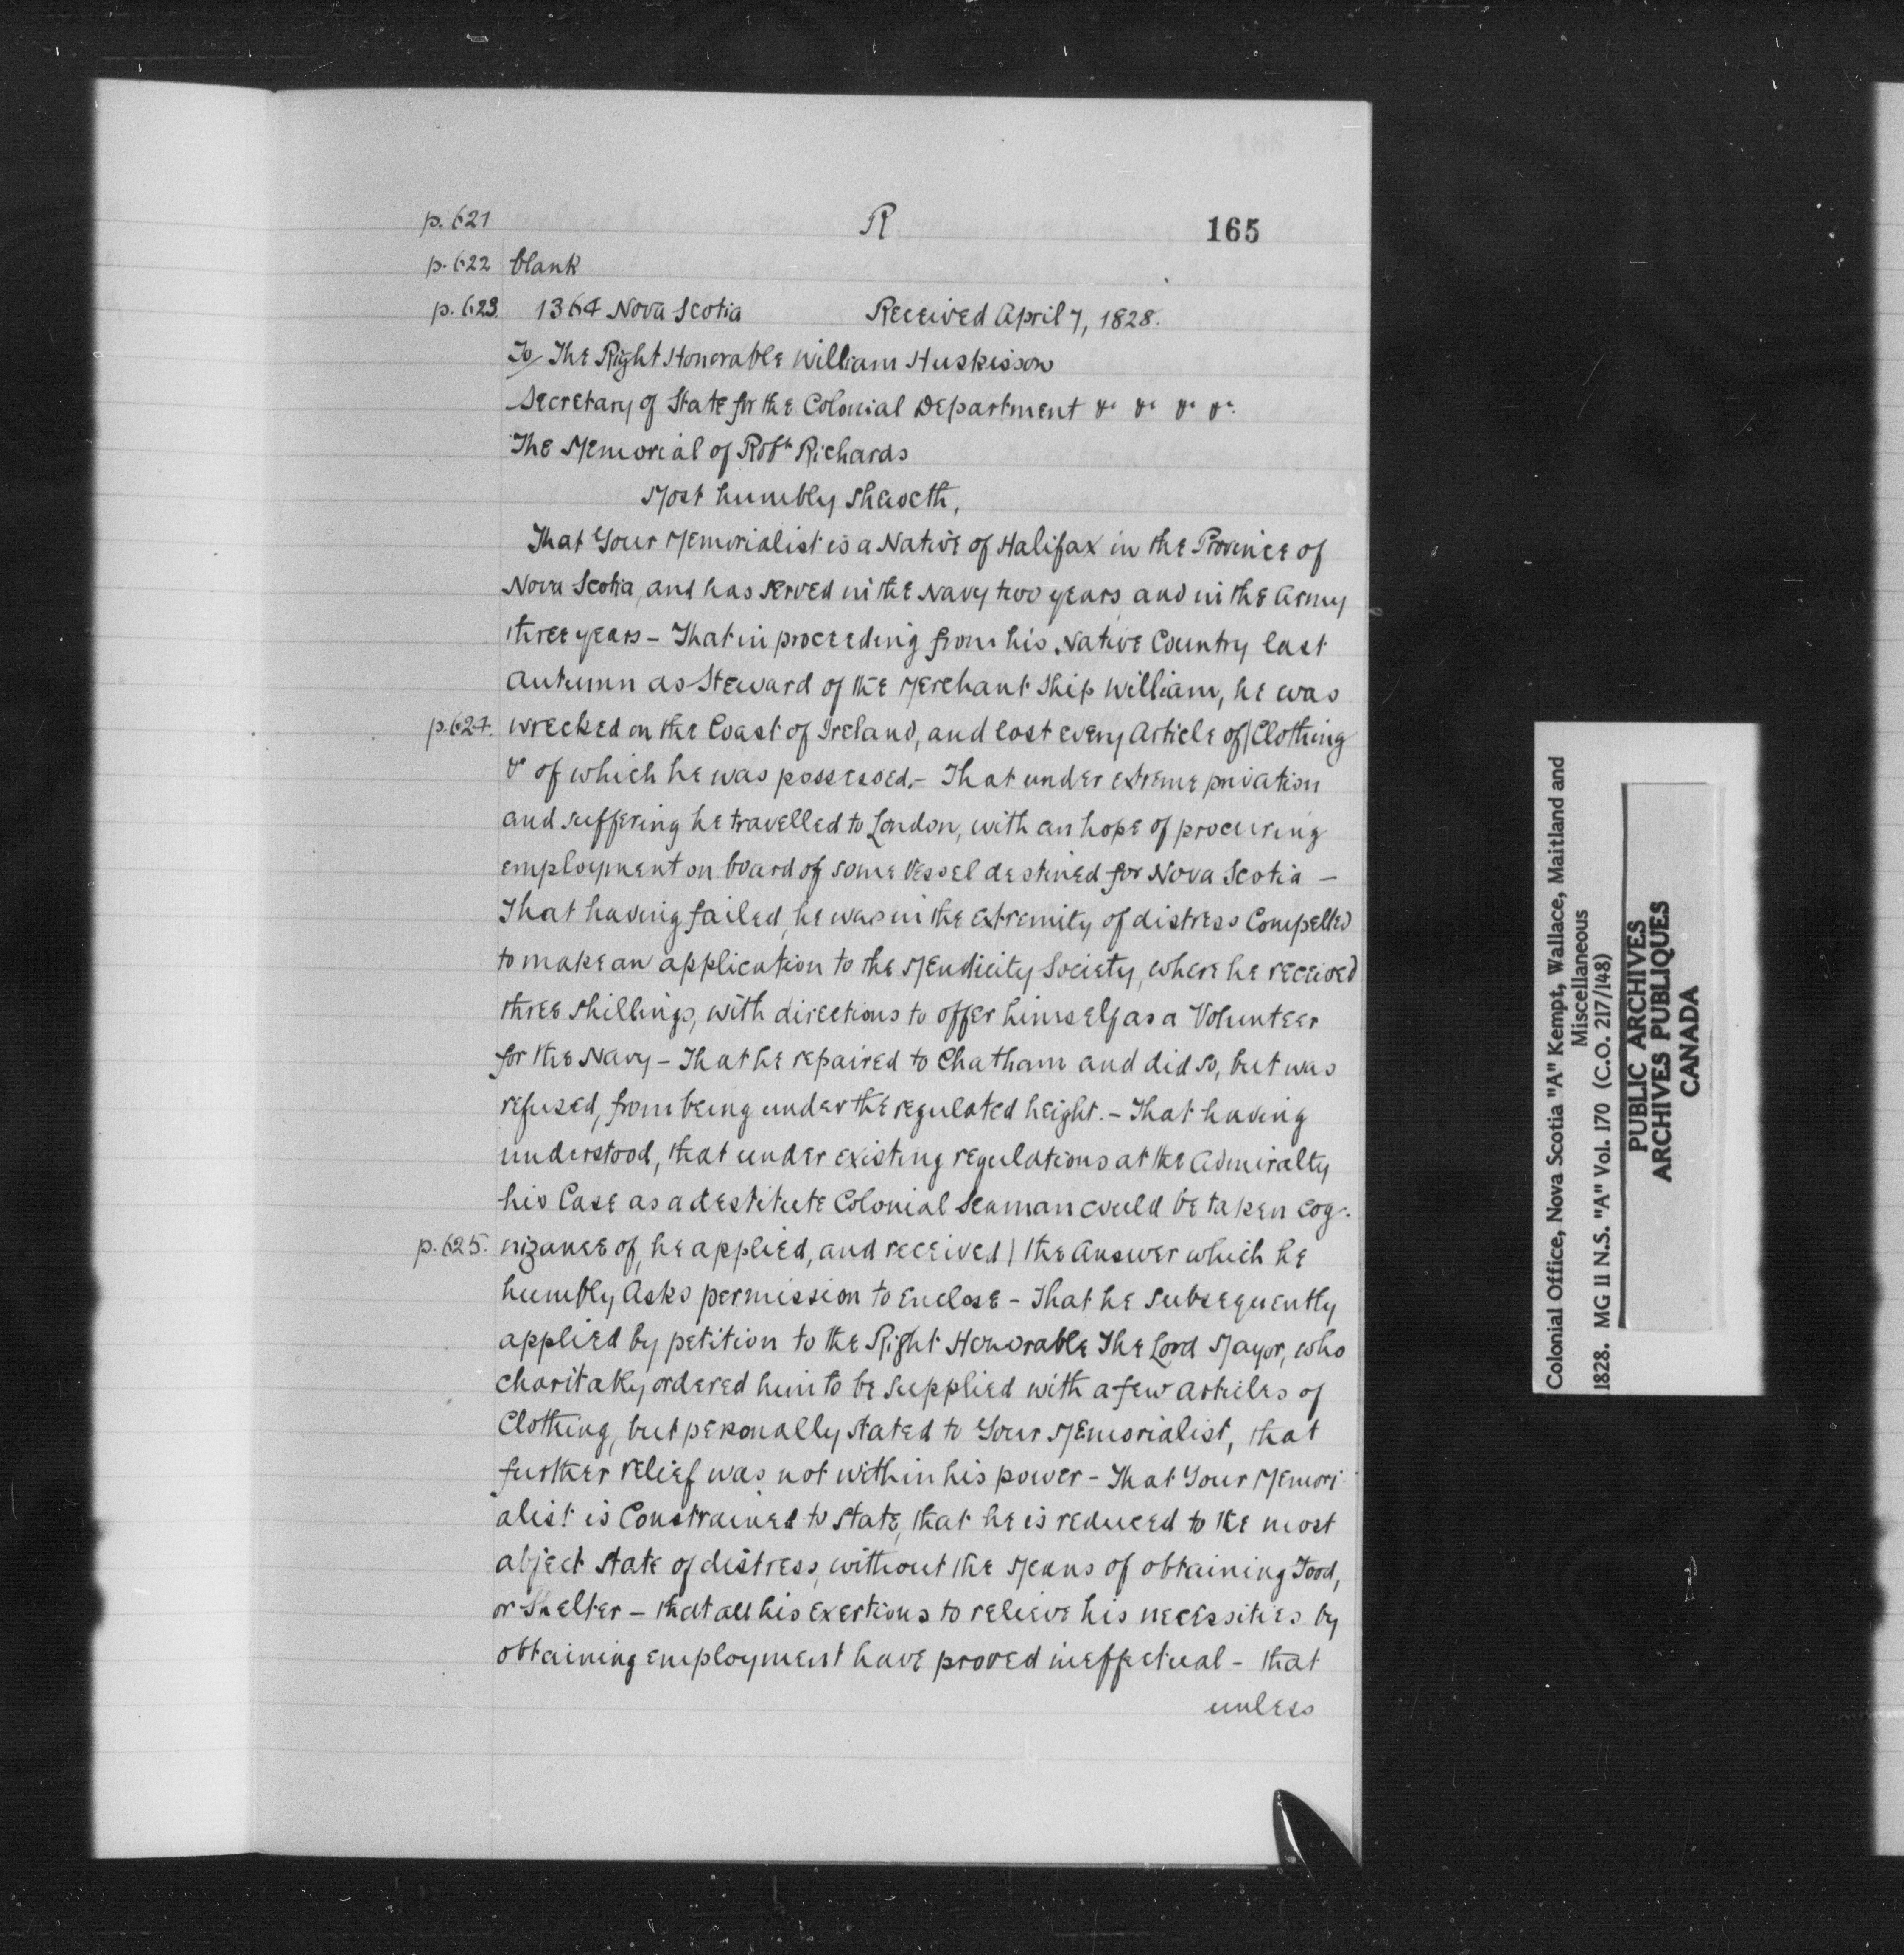 p.621 R 165
p.622 blank
p.623. 1364 Nova Scotia Received April 7, 1828.
To/ The Right Honorable William Huskisson
Secretary of State for the Colonial Department &c &c &c &c.
The Memorial of Robt Richards
Most humbly sheweth,
That Your Memorialist is a Native of Halifax in the Province of
Nova Scotia, and has served in the Navy two years, and in the Army
three years - That in proceeding from his Native Country last
Autumn as Steward of the Merchant Ship William, he was
p.624. wrecked on the Coast of Ireland, and lost every Article of | Clothing
&c of which he was possessed. - That under extreme privation
and suffering he travelled to London, with an hope of procuring
employment on board of some Vessel destined for Nova Scotia -
That having failed, he was in the extremity of distress Compelled
to make an application to the Mendicity Society, where he received
three shillings, with directions to offer himself as a Volunteer
for the Navy - That he repaired to Chatham and did so, but was
refused, from being under the regulated height. - That having
understood, that under existing regulations at the Admiralty
his Case as a destitute Colonial Seaman could be taken cog-
p.625. nizance of, he applied, and received | the Answer which he
humbly Asks permission to Enclose - That he subsequently
applied by petition to the Right Honorable The Lord Mayor, who
charitably ordered him to be supplied with a few articles of
Clothing, but personally stated to Your Memorialist, that
further relief was not within his power - That Your Memori-
alist is Constrained to state, that he is reduced to the most
abject state of distress, without the Means of obtaining Food,
or Shelter - that all his exertions to relieve his necessities by
obtaining employment have proved ineffectual - that
unless
Colonial Office, Nova Scotia "A" Kempt, Wallace, Maitland and
Miscellaneous
1828. MG 11 N.S. "A" Vol. 170 (C.O. 217/148)
PUBLIC ARCHIVES
ARCHIVES PUBLIQUES
CANADA